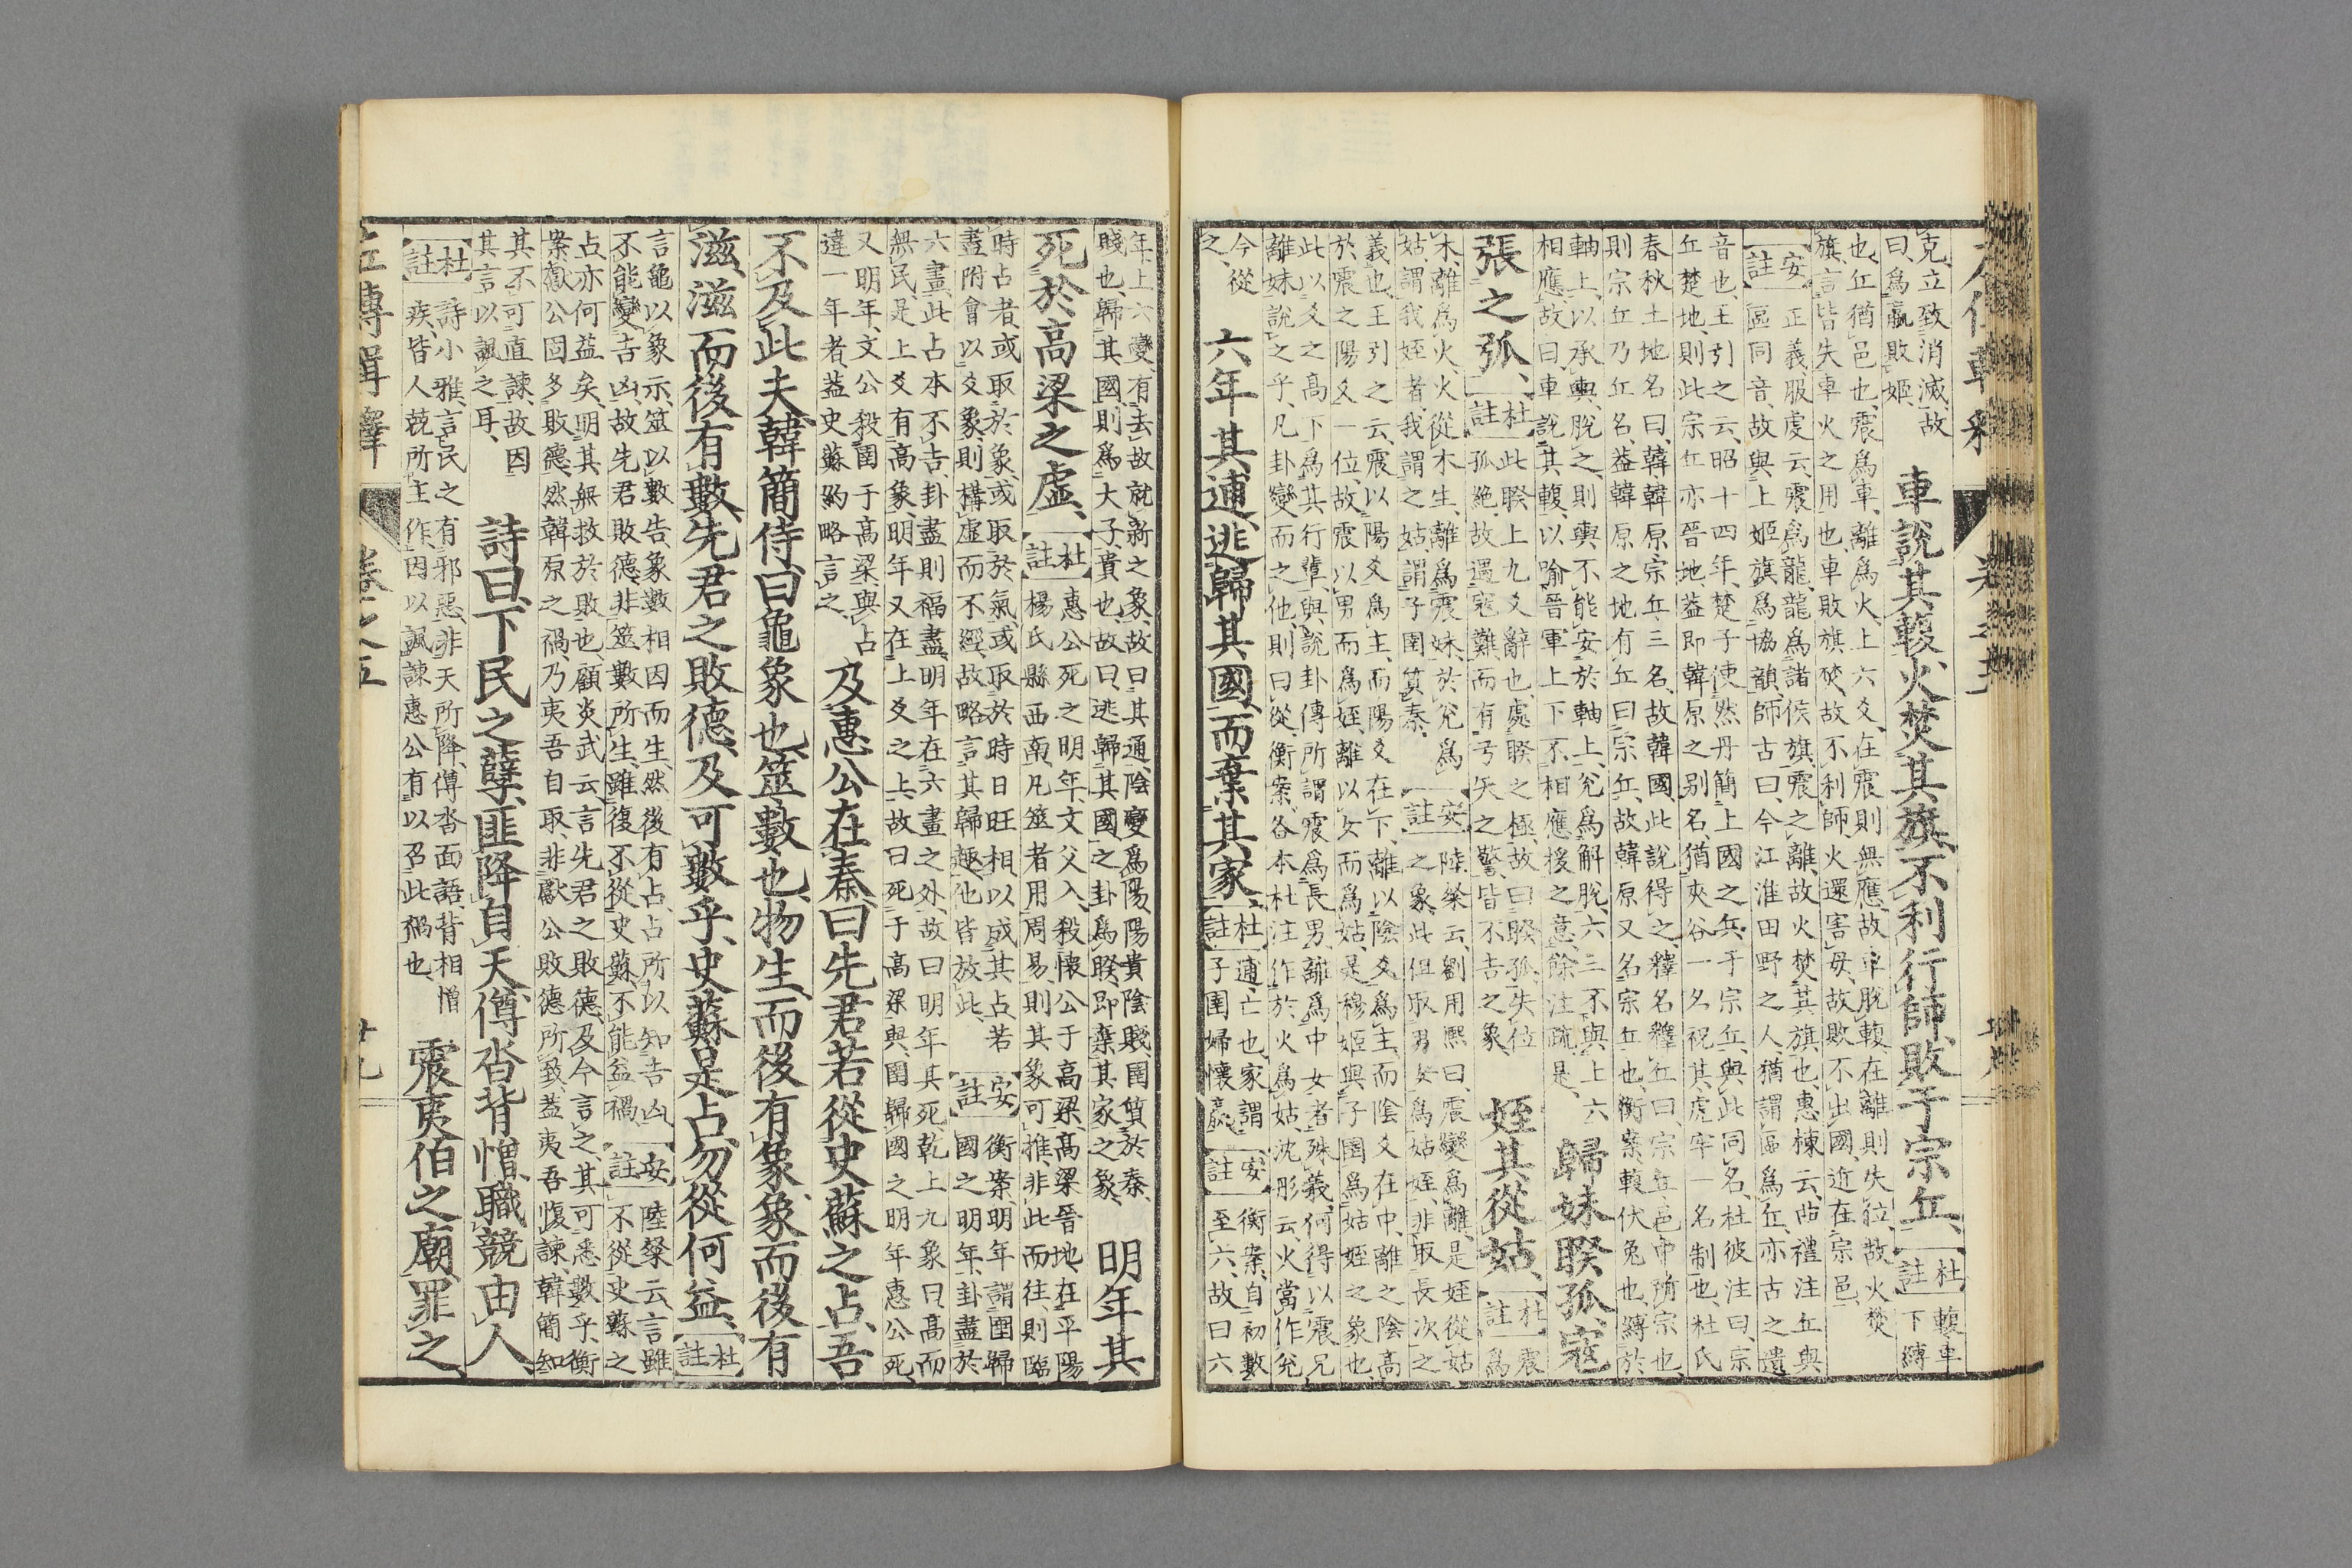 克立致消滅、故
曰、爲嬴敗姬、
車說其輹、火焚其旗、不利行師、敗于宗丘、
杜註
輹車
下縛
也、丘猶邑也、震爲車、離爲火、上六爻、在震則無應、故車脫輹、在離則失位、故火焚
旗、言皆失車火之用也、車敗旗焚、故不利師、火還害母、故敗不出國、近在宗邑、
安註
正義、服虔云、震爲龍、龍爲諸侯旗、震之離、故火焚其旗也、惠棟云、曲禮注、丘與
區同音、故與上姬旗爲協韻、師古曰、今江淮田野之人、猶謂區爲丘、亦古之遺
音也、王引之云、昭十四年、楚子使然丹簡上國之兵于宗丘、與此同名、杜彼注曰、宗
丘楚地、則此宗丘亦晉地、葢即韓原之别名、猶夾谷一名祝其、虎牢一名制也、杜氏
春秋土地名曰、韓韓原宗丘三名、故韓國、此說得之、釋名釋丘曰、宗丘、邑中所宗也、
則宗丘乃丘名、葢韓原之地有丘曰宗丘、故韓原又名宗丘也、衡案、輹伏兔也、縛於
軸上、以承輿、脫之、則輿不能安於軸上、兌爲解脫、六三不與上六
相應、故曰、車說其輹、以喻晉軍上下不相應援之意、餘注疏是、
歸妹睽孤、寇
張之弧、
杜註
此睽上九爻辭也、處睽之極、故曰睽孤、失位
孤絶、故遇寇難、而有弓矢之警、皆不吉之象、
姪其從姑、
杜註
震
爲
木、離爲火、火從木生、離爲震妹、於兌爲
姑、謂我姪者、我謂之姑、謂子圉質秦、
安註
陸粲云、劉用熙曰、震變爲離、是姪從姑
之象、此但取男女爲姑姪、非取長次之
義也、王引之云、震以陽爻爲主、而陽爻在下、離以陰爻爲主、而陰爻在中、離之陰高
於震之陽爻一位、故震以男而爲姪、離以女而爲姑、是穆姬與子圉爲姑姪之象也、
此以爻之高下、爲其行輩、與說卦傳所謂震爲長男、離爲中女者殊義、何得以震兄
離妹說之乎、凡卦變而之他、則曰從、衡案、各本杜注作於火爲姑、沈彤云、火當作兌
今從
之、
六年其逋、逃歸其國、而棄其家、
杜註
逋、亡也、家謂
子圉婦懷嬴、
安註
衡案、自初數
至六、故曰六
年、上六變、有去故就新之象、故曰其逋、陰變爲陽、陽貴陰賤、圉質於秦、
賤也、歸其國則爲大子、貴也、故曰、逃歸其國、之卦爲睽、即棄其家之象、
明年其
死於高梁之虛、
杜註
惠公死之明年、文公入、殺懷公于高梁、高梁晉地、在平陽
楊氏縣西南、凡筮者用周易、則其象可推、非此而往、則臨
時占者、或取於象、或取於氣、或取於時日旺相、以成其占、若
盡附會以爻象、則構虛而不經、故略言其歸趣、他皆放此、
安註
衡案、明年謂圉歸
國之明年、卦盡於
六畫、此占本不吉、卦盡則福盡、明年在六畫之外、故曰明年其死、乾上九象曰、高而
無民、是上爻有高象、明年又在上爻之上、故曰死于高梁、與圉歸國之明年惠公死、
又明年、文公殺圉于高梁、與占
違一年者、葢史蘇約略言之、
及惠公在秦、曰、先君若從史蘇之占、吾
不及此夫、韓簡侍、曰、龜、象也、筮、數也、物生而後有象、象而後有
滋、滋而後有數、先君之敗德、及可數乎、史蘇是占、勿從何益、
杜註
言龜以象示、筮以數告、象數相因而生、然後有占、占所以知吉凶、
不能變吉凶、故先君敗德、非筮數所生、雖復不從史蘇、不能益禍、
安註
陸粲云、言雖
不從史蘇之
占、亦何益矣、明其無救於敗也、顧炎武云、言先君之敗德、及今言之、其可悉數乎、衡
案、獻公固多敗德、然韓原之禍、乃夷吾自取、非獻公敗德所致、葢夷吾愎諫、韓簡知
其不可直諫、故因
其言以諷之耳、
詩曰、下民之孽、匪降自天、僔沓背憎、職競由人、
杜註
詩小雅、言民之有邪惡、非天所降、僔沓面語、背相憎
疾、皆人競所主作、因以諷諫惠公有以召此禍也、
震夷伯之廟、罪之、
左傳輯釋
卷之五
廿九